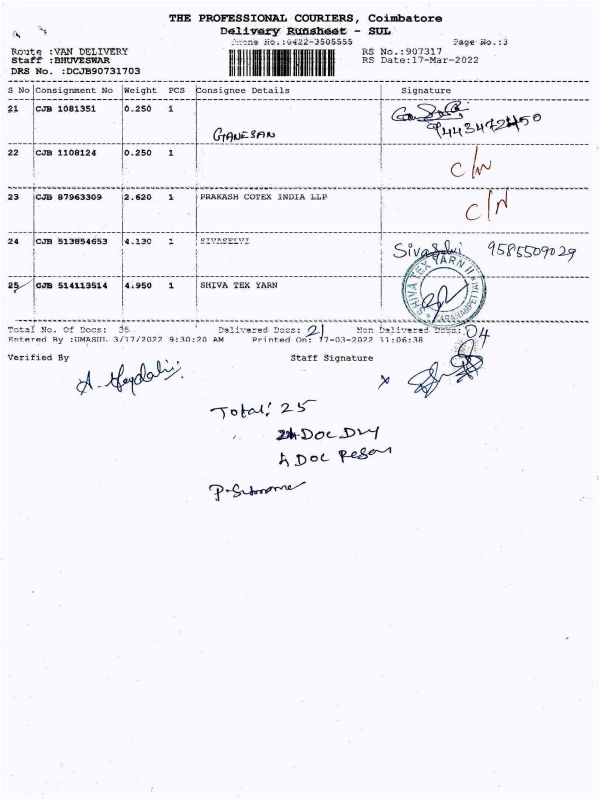 THE PROFESSIONAL COURIERS, Coimbatore
Delivery Runsheet - SUL
Phone No.:0422-3505555
Page No.:3
Route :VAN DELIVERY
RS No.:907317
Staff :BHUVESWAR
RS Date:17-Mar-2022
DRS No. :DCJB90731703
S No Consignment No Weight PCS Consignee Details Signature
21 CJB 1081351 0.250 1
GANESAN
22 CJB 1108124 0.250 1
C/N
23 CJB 87963309 2.620 1 PRAKASH COTEX INDIA LLP
C/N
24 CJB 513854653 4.130 1 SIVASELVI
Sivaselvi 9585509029
25 CJB 514113514 4.950 1 SHIVA TEX YARN
SHIVA TEX YARN
Total No. Of Docs: 35 Delivered Docs: 21 Non Delivered Docs: 04
Entered By :UMASUL 3/17/2022 9:30:20 AM Printed On: 17-03-2022 11:06:38
Verified By Staff Signature
Total: 25
Doc Dly
4 Doc